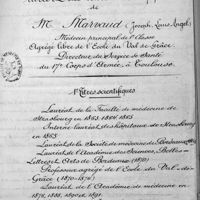 de
M. Marvaud (Joseph, Louis, Angel)
Médecin principal de 1re Classe
Agrégé libre de l'Ecole du Val de Grâce
Directeur du Service de Santé
du 17e Corps d'Armée, à Toulouse
Titres scientifiques
Lauréat de la Faculté de médecine de
Strasbourg en 1863, 1864, 1865
Interne lauréat des hôpitaux de Strasbourg
en 1865
Lauréat de la Société de médecine de Bordeaux
Lauréat de l'Académie des Sciences, Belles-
Lettres & Arts de Bordeaux (1870)
Professeur agrégé de l'Ecole du Val-de-
Grâce (1870-1874)
Lauréat de l'Académie de médecine en
1876, 1888, 1890 & 1891.